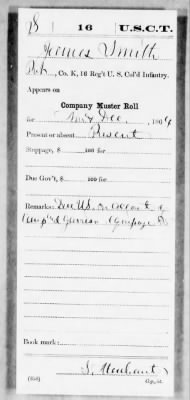 S 16 U.S.C.T.
James Smith
Pvt., Co. K, 16 Reg't U. S. Col'd Infantry.
Appears on
Company Muster Roll
for Nov & Dec, 1864
Present or absent Present
Stoppage, $ 100 for
Due Gov't, $ 100 for
Remarks: Due U.S. on
Camp & Garrison Equipage
Book mark:
(358) Copyist.